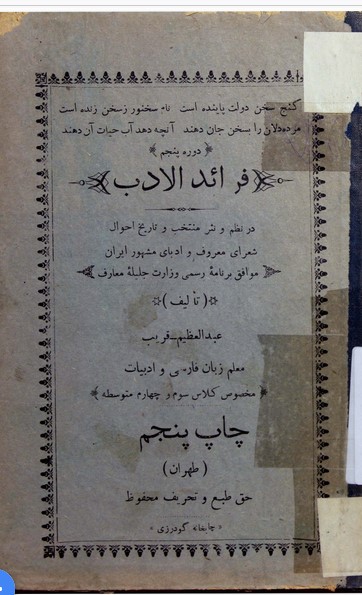 گنج سخن دولت پاینده است نام سخنور زسخن زنده است
مرده‌دلان را بسخن جان دهند آنچه دهد آب حیات آن دهند
(دوره پنجم)
فرائد الادب
در نظم و نثر منتخب و تاریخ احوال
شعرای معروف و ادبای مشهور ایران
موافق برنامهٔ رسمی وزارت جلیلهٔ معارف
(تألیف)
عبدالعظیم قریب
معلم زبان فارسی و ادبیات
مخصوص کلاس سوم و چهارم متوسطه
چاپ پنجم
(طهران)
حق طبع و تحریف محفوظ
«چاپخانه گودرزی»